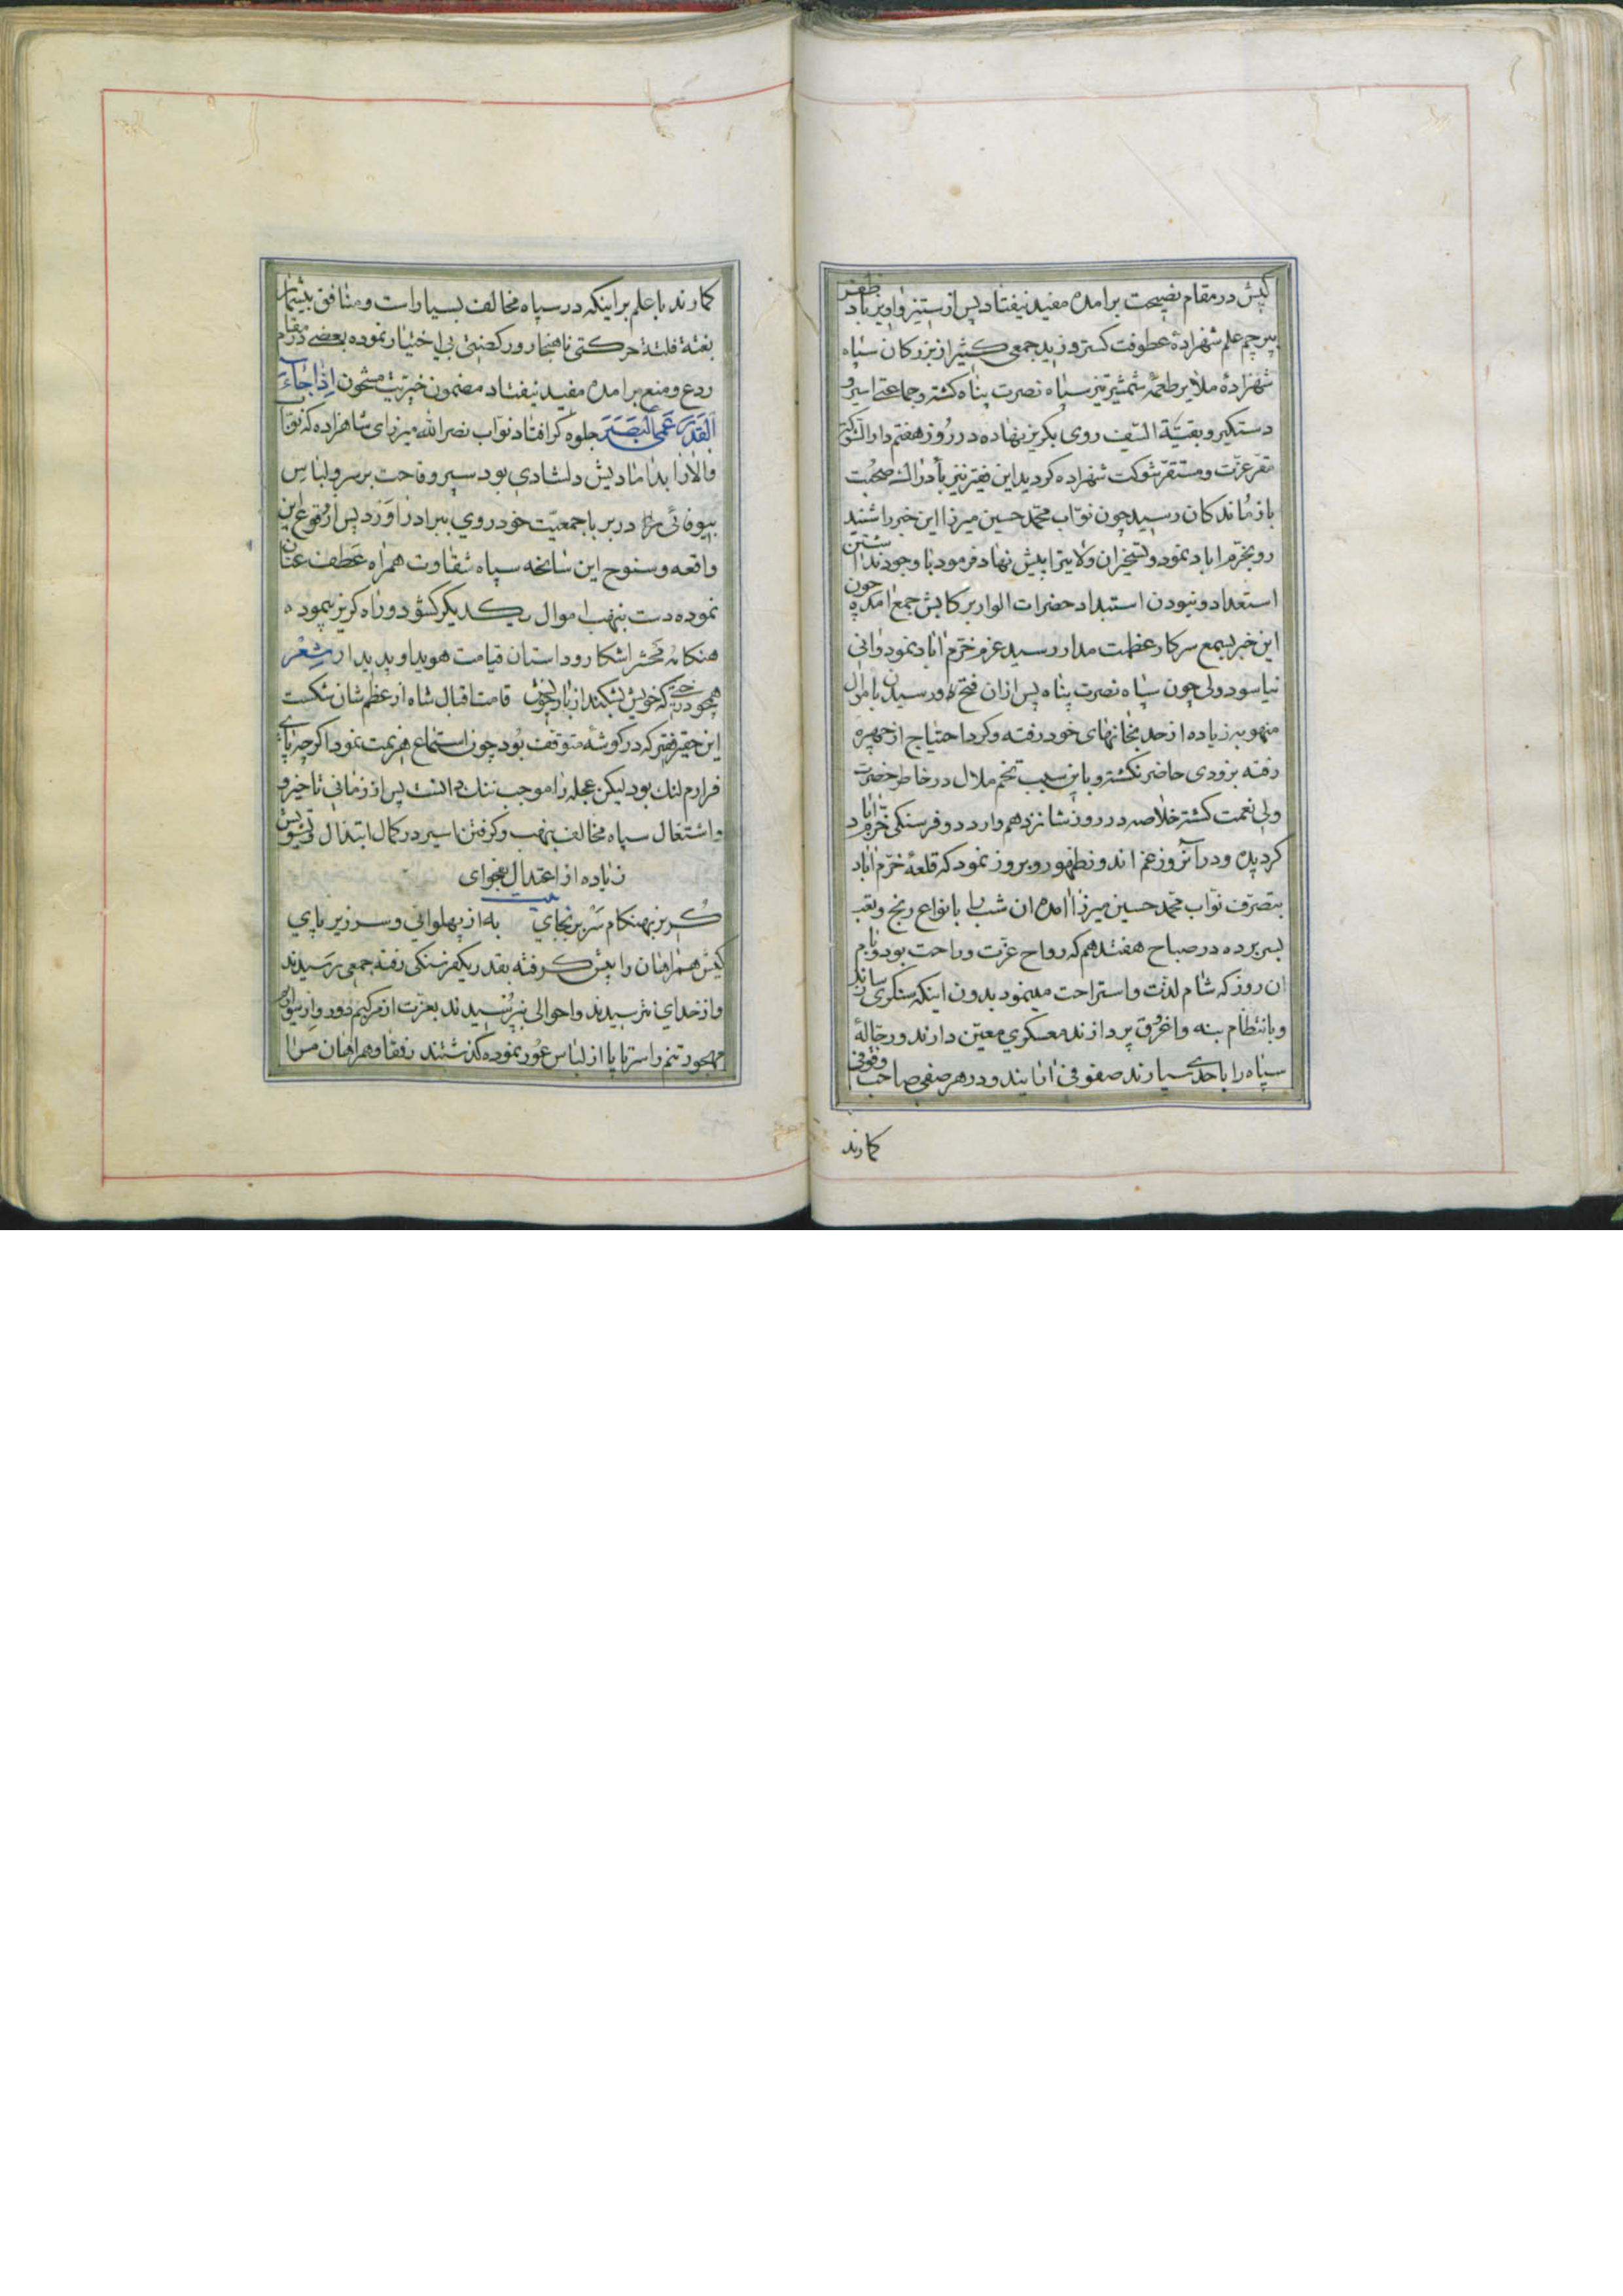 کپش در مقام نصیحت برامده مفید نیفتاد پس از ستیز و اویز باد ظفر
پرچم علم شهزادهٔ عطوفت کستر وزید جمعی کثیر از بزرکان سپاه
شهزادهٔ ملایر طعمهٔ شمشیر تیز سپاه نصرت پناه کشته و جماعتی اسیر و
دستکیر و بقیّة السّیف روی بکریز نهاده در روز هفتم
مقرّ عزّت و مستقرّ شوکت شهزاده کردید این فقیر نیز صحبت
بازماندکان رسید چون نوّاب محمّد حسین میرزا این خبر را شنید
رو بخرّم اباد نمود و تسخیر ان ولایت را پیش نهاد فرمود با وجود نداشتن
استعداد و نبودن استبداد حضرات الوار بر کابش جمع امده چون
این خبر بسمع سرکار عظمت مدار رسید عزم خرّم اباد نمود وانی
نیاسود ولی چون سپاه نصرت پناه پس از ان فتح و رسیدن باموال
منهوبه زیاده از حد بخانهای خود رفته و کرد احتیاج از چهره
رفته بزودی حاضر نکشته و باین سبب تخم ملال در خاطر حضرت
ولی نعمت کشته خلاصه در روز شانزدهم وارد دو فرسنکی خرّم اباد
کردیده و در آنروز غم اندوز بظهور و بروز نمود که قلعهٔ خرّم اباد
بتصرّف نوّاب محمّد حسین میرزا امده ان شب را بانواع رنج و تعب
بسر برده در صباح هفتدهم که رواح عزّت و راحت بود و بام
ان روز که شام لذّت و استراحت مینمود بدون اینکه سنکری سازند
و بانتظام بنه و اغروق پردازند معسکری معیّن دارند و رجّالهٔ
سپاه را باحدی سپارند صفوفی ارایند و در هر صفی صاحب وقوفی
کمارند
کمارند با علم بر اینکه در سپاه مخالف بسیار است و منافق بیشمار
بغتة فلتة حرکتی ناهنجار و رکضتی بی اختیار نموده بعضی در مقام
ردع و منع برامده مفید نیفتاد مضمون خیریّت مشحون اِذا جاءَ
القَدَر عَمِیَ البَصَر جلوه کر افتاد نوّاب نصر الله میرزای شاهزاده که نوّاب
والا را بدامادیش دلشادی بود سپر وقاحت بر سر و لباس
بیوفائی را در بر با جمعیّت خود روی ببرادر اورد پس از وقوع این
واقعه و سنوح این سانحه سپاه شقاوت همراه عطف عنان
نموده دست بنهب اموال یکدیکر کشود و راه کریز پیموده
هنکامه محشر اشکار و داستان قیامت هویدا و پدیدار شعر
همچو درختی که خویش بشکند از بار خویش قامت اقبال شاه از عظم شان شکست
این حقیر فقیر که در کوشهٔ متوقف بود چون استماع هزیمت نمود اکرچه پای
فرارم لنک بود لیکن عجله را موجب ننک دانست پس از زمانی تاخیر و
و اشتغال سپاه مخالف بنهب و کرفتن اسیر در کمال ابتذال و تشویش
زیاده از اعتدال بفحوای
بیت
کریز بهنکام سَر بر بجای به از پهلوانی و سر زیر پای
کپش همراهان را پیش کرفته بقدر یکفرسنکی رفته جمعی رسیدند
و از خدای نترسیدند و احوالی نپرسیدند بعزّت از مرکبم دور و از
مهجور تنم را سر تا پا از لباس عور نموده کذشتند رفقا و همراهان مرا